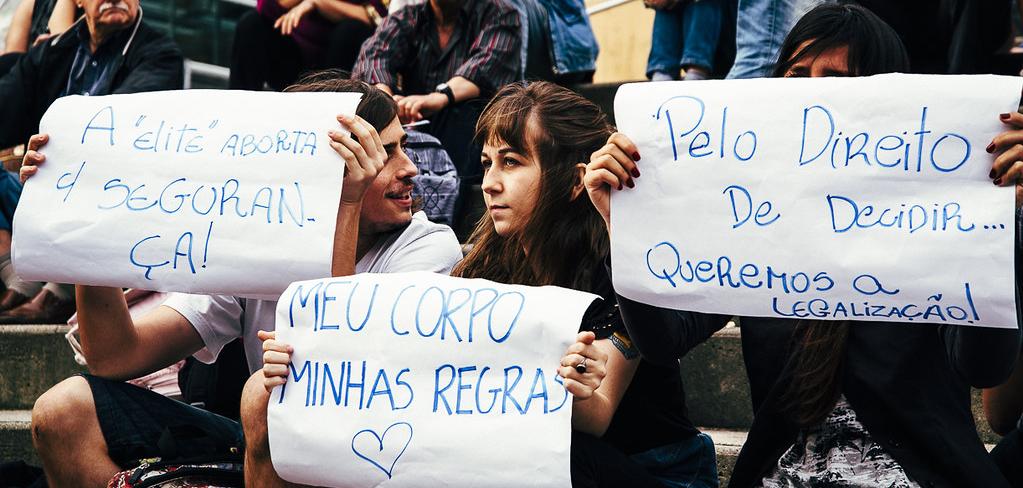 A "ELITE" ABORTA
C/ SEGURAN-
ÇA!
MEU CORPO
MINHAS REGRAS
Pelo Direito
De Decidir...
Queremos a
LEGALIZAÇÃO!